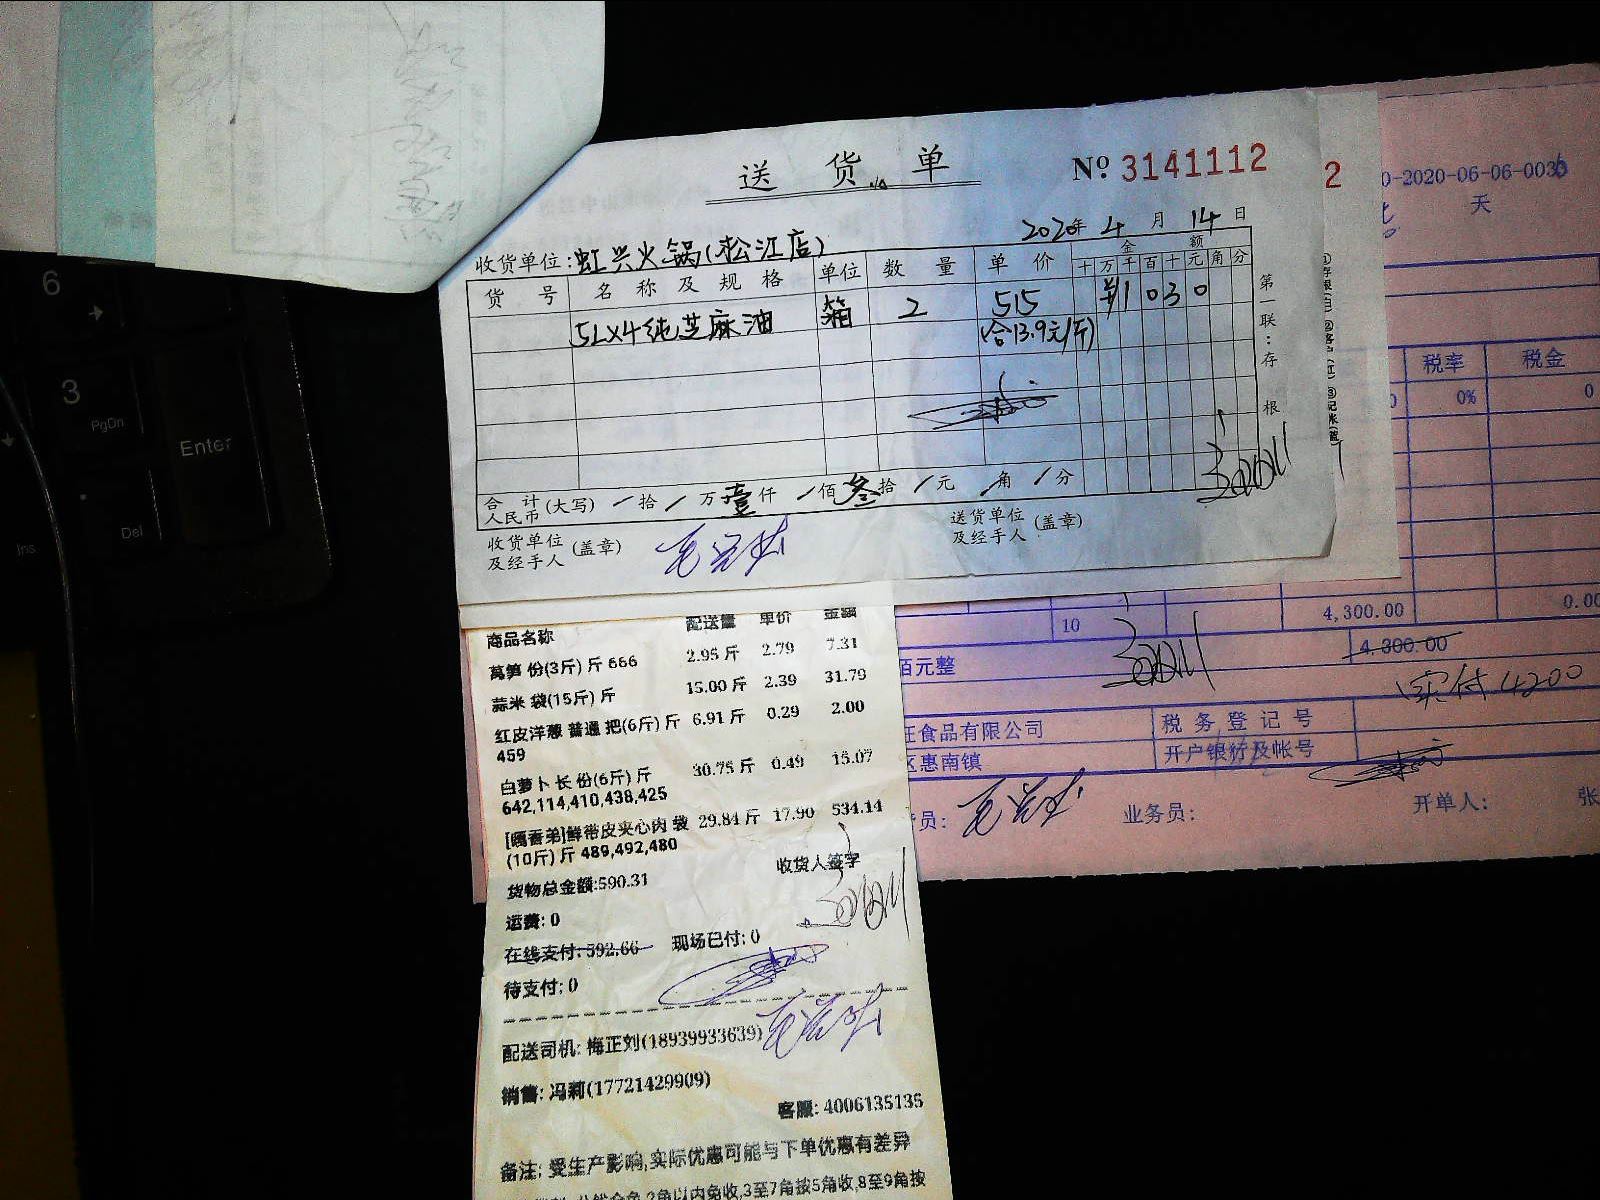 送 货 单
№ 3141112
2
0-2020-06-06-003
天
2020年 4 月 14 日
收货单位:虹兴火锅(松江店)
货 号 名 称 及 规 格 单位 数 量 单 价 金 额
十 万 千 百 十 元 角 分
5L×4纯芝麻油 箱 2 515 ¥1030
(合13.9元/斤)
第一联:存根
①存根(白) ②客户(红) ③记帐(蓝)
合 计 人民币 (大写) / 拾 / 万 壹 仟 / 佰 叁 拾 / 元 / 角 / 分
收货单位及经手人 (盖章)
送货单位及经手人 (盖章)
税率 税金
0% 0
10 4,300.00 0.00
佰元整 4,300.00
实付4200
旺食品有限公司 税 务 登 记 号
区惠南镇 开户银行及帐号
员: 业务员: 开单人: 张
商品名称 配送量 单价 金额
莴笋 份(3斤) 斤 666 2.95 斤 2.79 7.31
蒜米 袋(15斤) 斤 15.00 斤 2.39 31.79
红皮洋葱 普通 把(6斤) 斤 6.91 斤 0.29 2.00
459
白萝卜 长 份(6斤) 斤 30.75 斤 0.49 15.07
642,114,410,438,425
[嘴香弟]鲜带皮夹心肉 袋 29.84 斤 17.90 534.14
(10斤) 斤 489,492,480
收货人签字
货物总金额:590.31
运费: 0
在线支付: 592.66 现场已付: 0
待支付: 0
配送司机: 梅正刘(18939933639)
销售: 冯莉(17721429909)
客服: 4006135135
备注: 受生产影响,实际优惠可能与下单优惠有差异
2角以内免收,3至7角按5角收,8至9角按
6
3
PgDn
Enter
Del
Ins